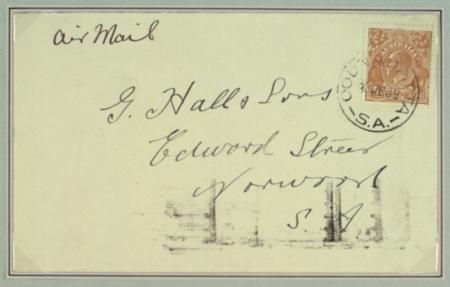 Air Mail
AUSTRALIA
S.A.
G. Hall & Sons
Edward Street
Norwood
S. A.